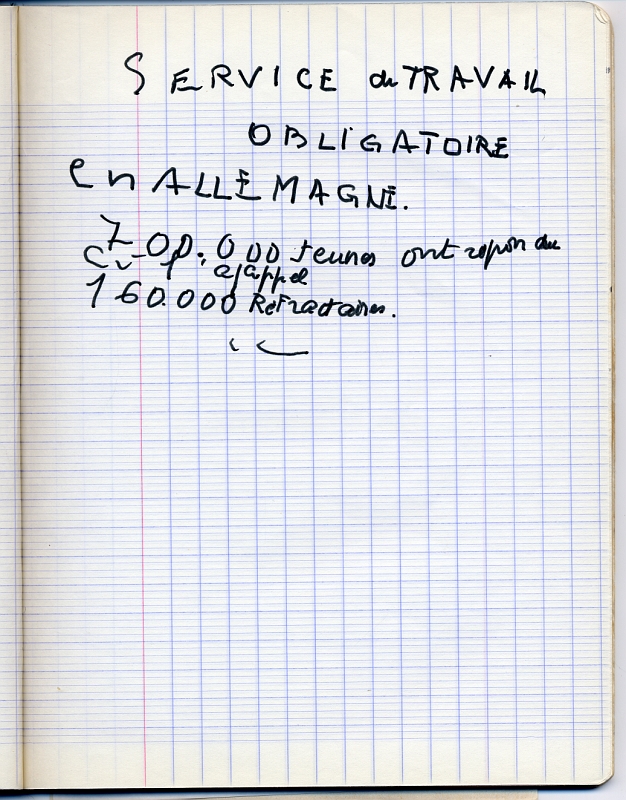 SERVICE du TRAVAIL
OBLIGATOIRE
en ALLEMAGNE.
700.000 Jeunes ont repondu
a l'appel
160.000 Refractaires.